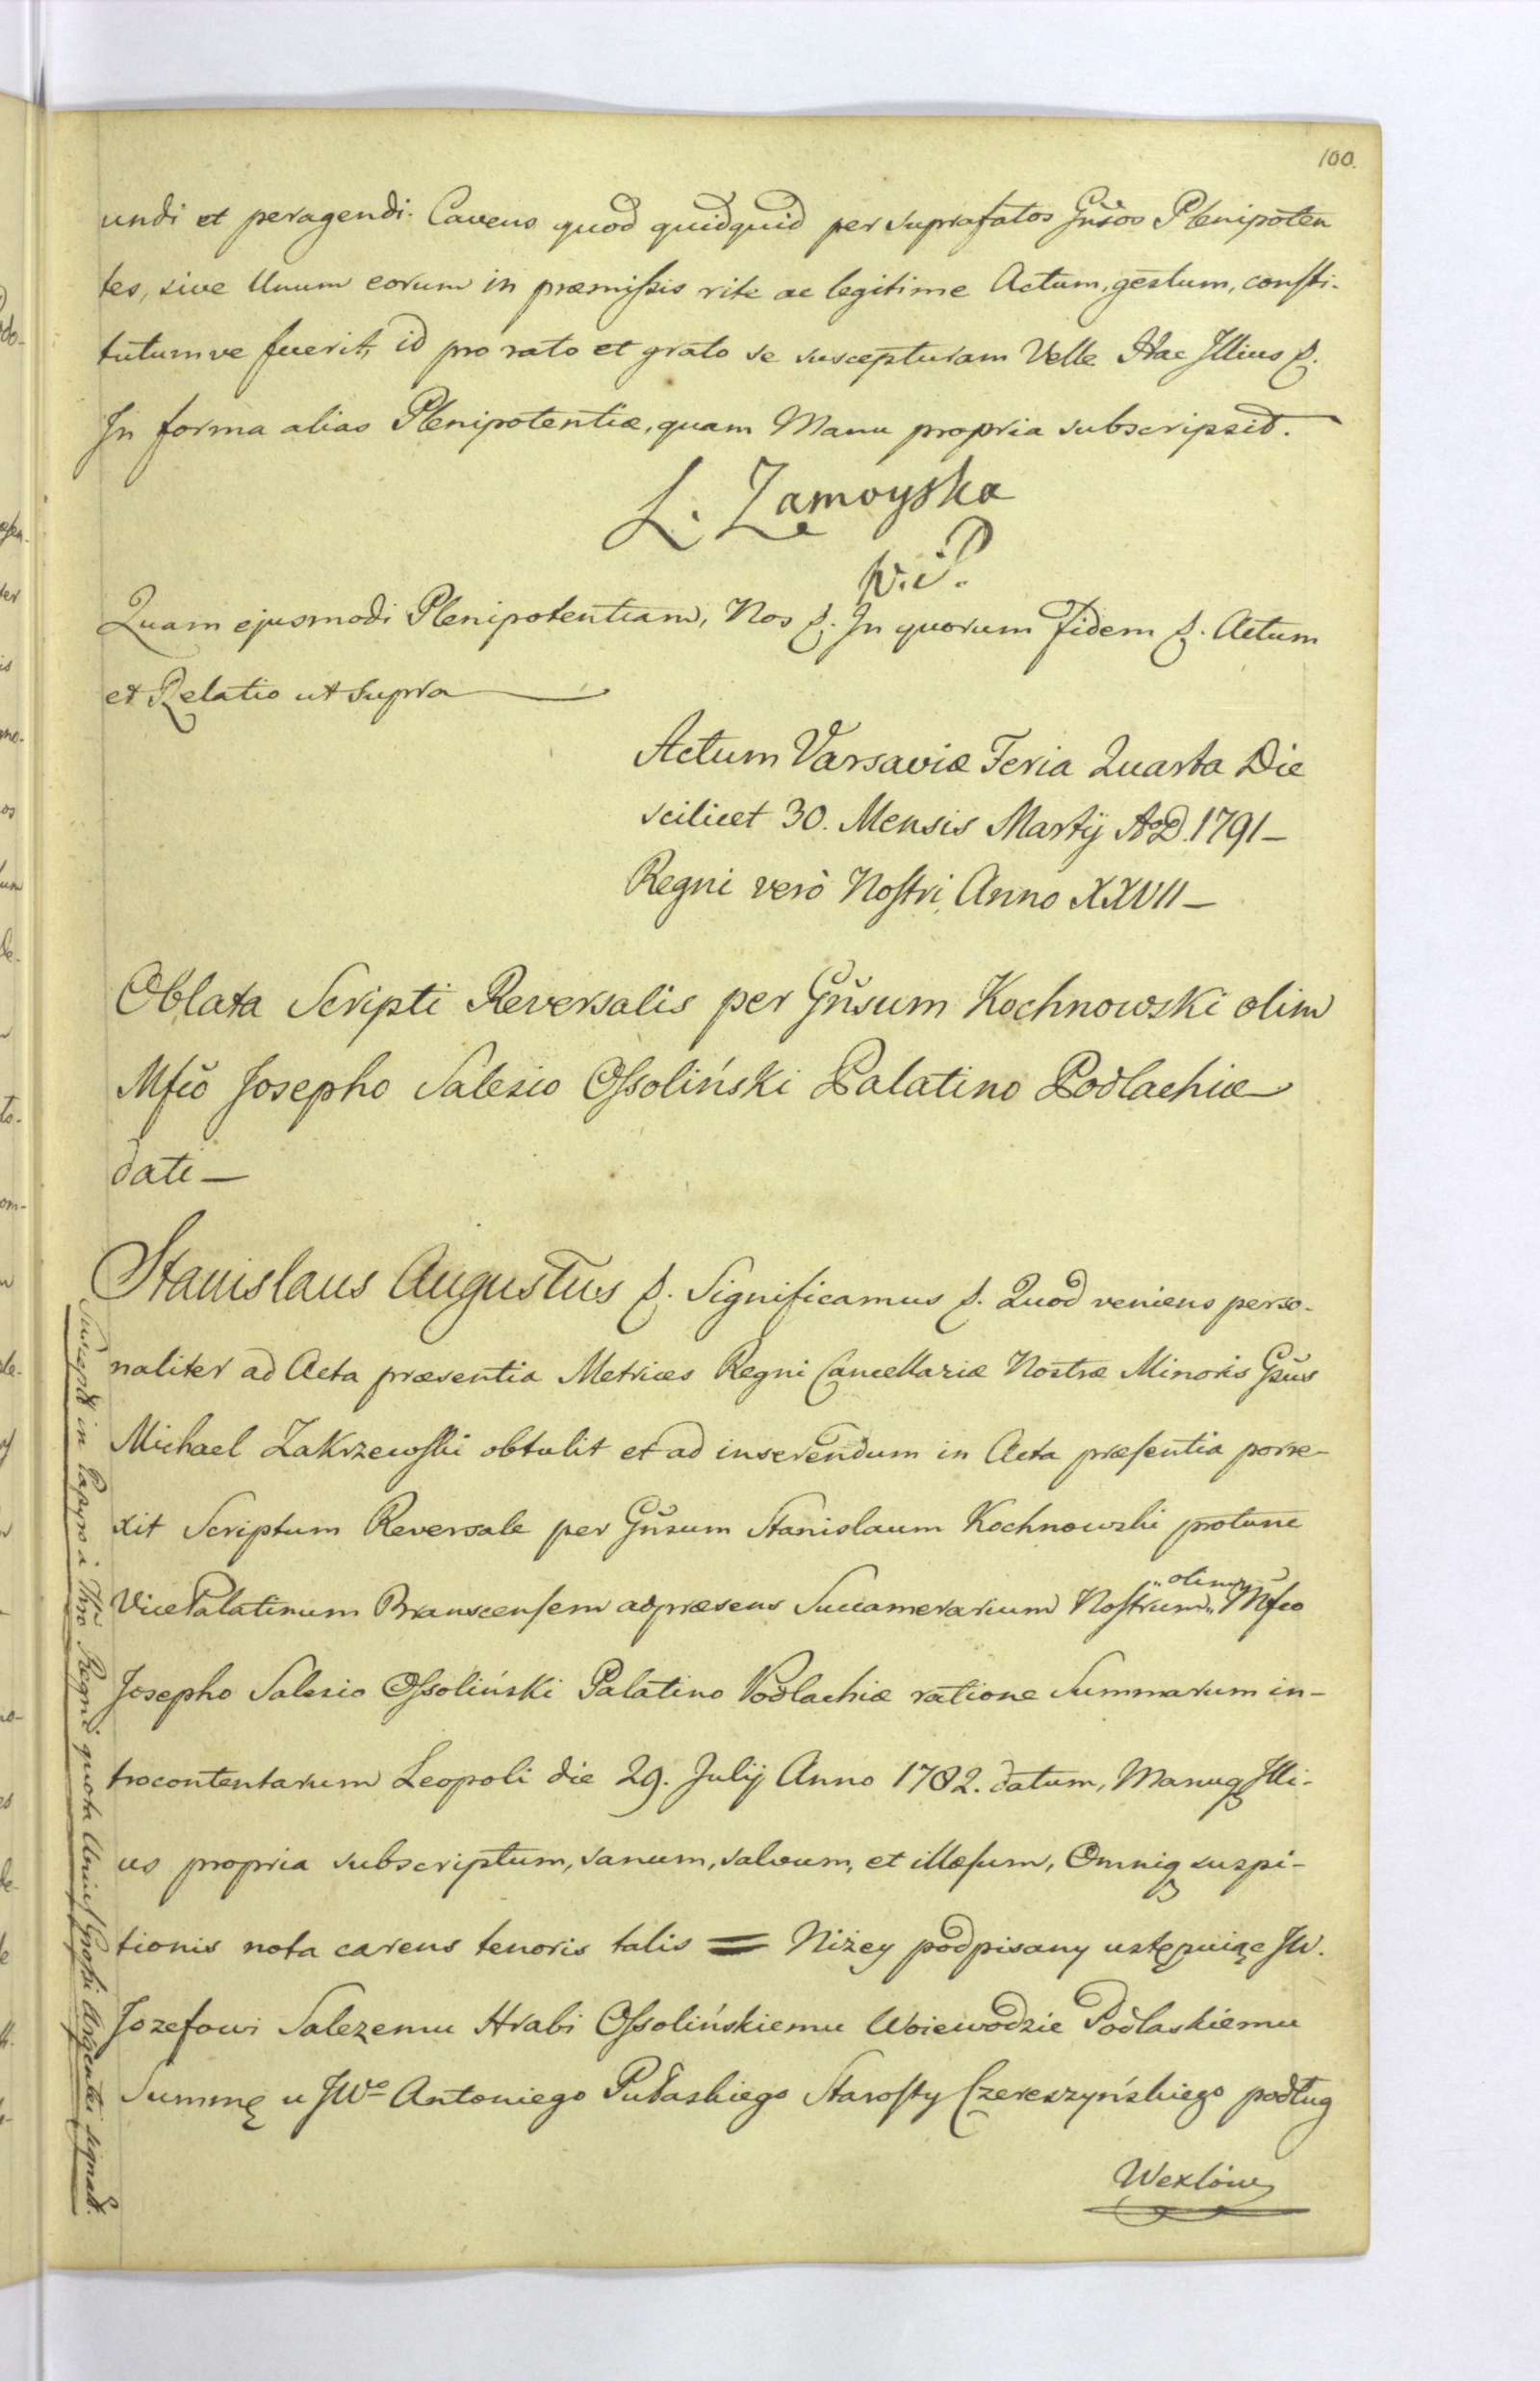 100.
undi et peragendi. Cavens quod quidquid per suprafatos Gnšos Plenipoten
tes, sive Unum eorum in præmißis rite ac legitime Actum, gestum, consti-
tutumve fuerit, id pro rato et grato se suscepturam Velle Hac Illius p.
In forma alias Plenipotentiæ, quam Manu propria subscripsit.
L. Zamoyska
Quam ejusmodi Plenipotentiam, Nos p. In quorum fidem p. Actum
et Relatio ut supra
Actum Varsaviæ Feria Quarta Die
scilicet 30. Mensis Martÿ AoD. 1791 –
Regni verò Nostri Anno XXVII –
Oblata Scripti Reversalis per Gňsum Kochnowski olim
Mfcŏ Josepho Salesio Oßoliński Palatino Podlachiæ
dati –
Stanislaus Augustus p. Significamus p. Quod veniens perso-
naliter ad Acta præsentia Metrices Regni Cancellariæ Nostræ Minoris Gsŭs
Michael Zakrzewski obtulit et ad inserendum in Acta præsentia porre-
xit Scriptum Reversale per Gňsum Stanislaum Kochnowski protunc
VicePalatinum Branscensem adpræsens Succamerarium Nostrum „olim„ Mfco
Josepho Salesio Oßoliński Palatino Podlachiæ ratione Summarum in-
trocontentarum Leopoli die 29. Julij Anno 1782. datum, Manuq Illi-
us propria subscriptum, sanum, salvum, et illæsum, Omniq suspi-
tionis nota carens tenoris talis = Niżey podpisany ustępuiąc JW.
Jozefowi Salezemu Hrabi Oßolińskiemu Woiewodzie Podlaskiemu
Summę u JWo Antoniego Pułaskiego Starosty Czereszyńskiego podług
Wexlów
Suscept in Papyro à Thro Regni quota Unius Großi Argentei signatt.